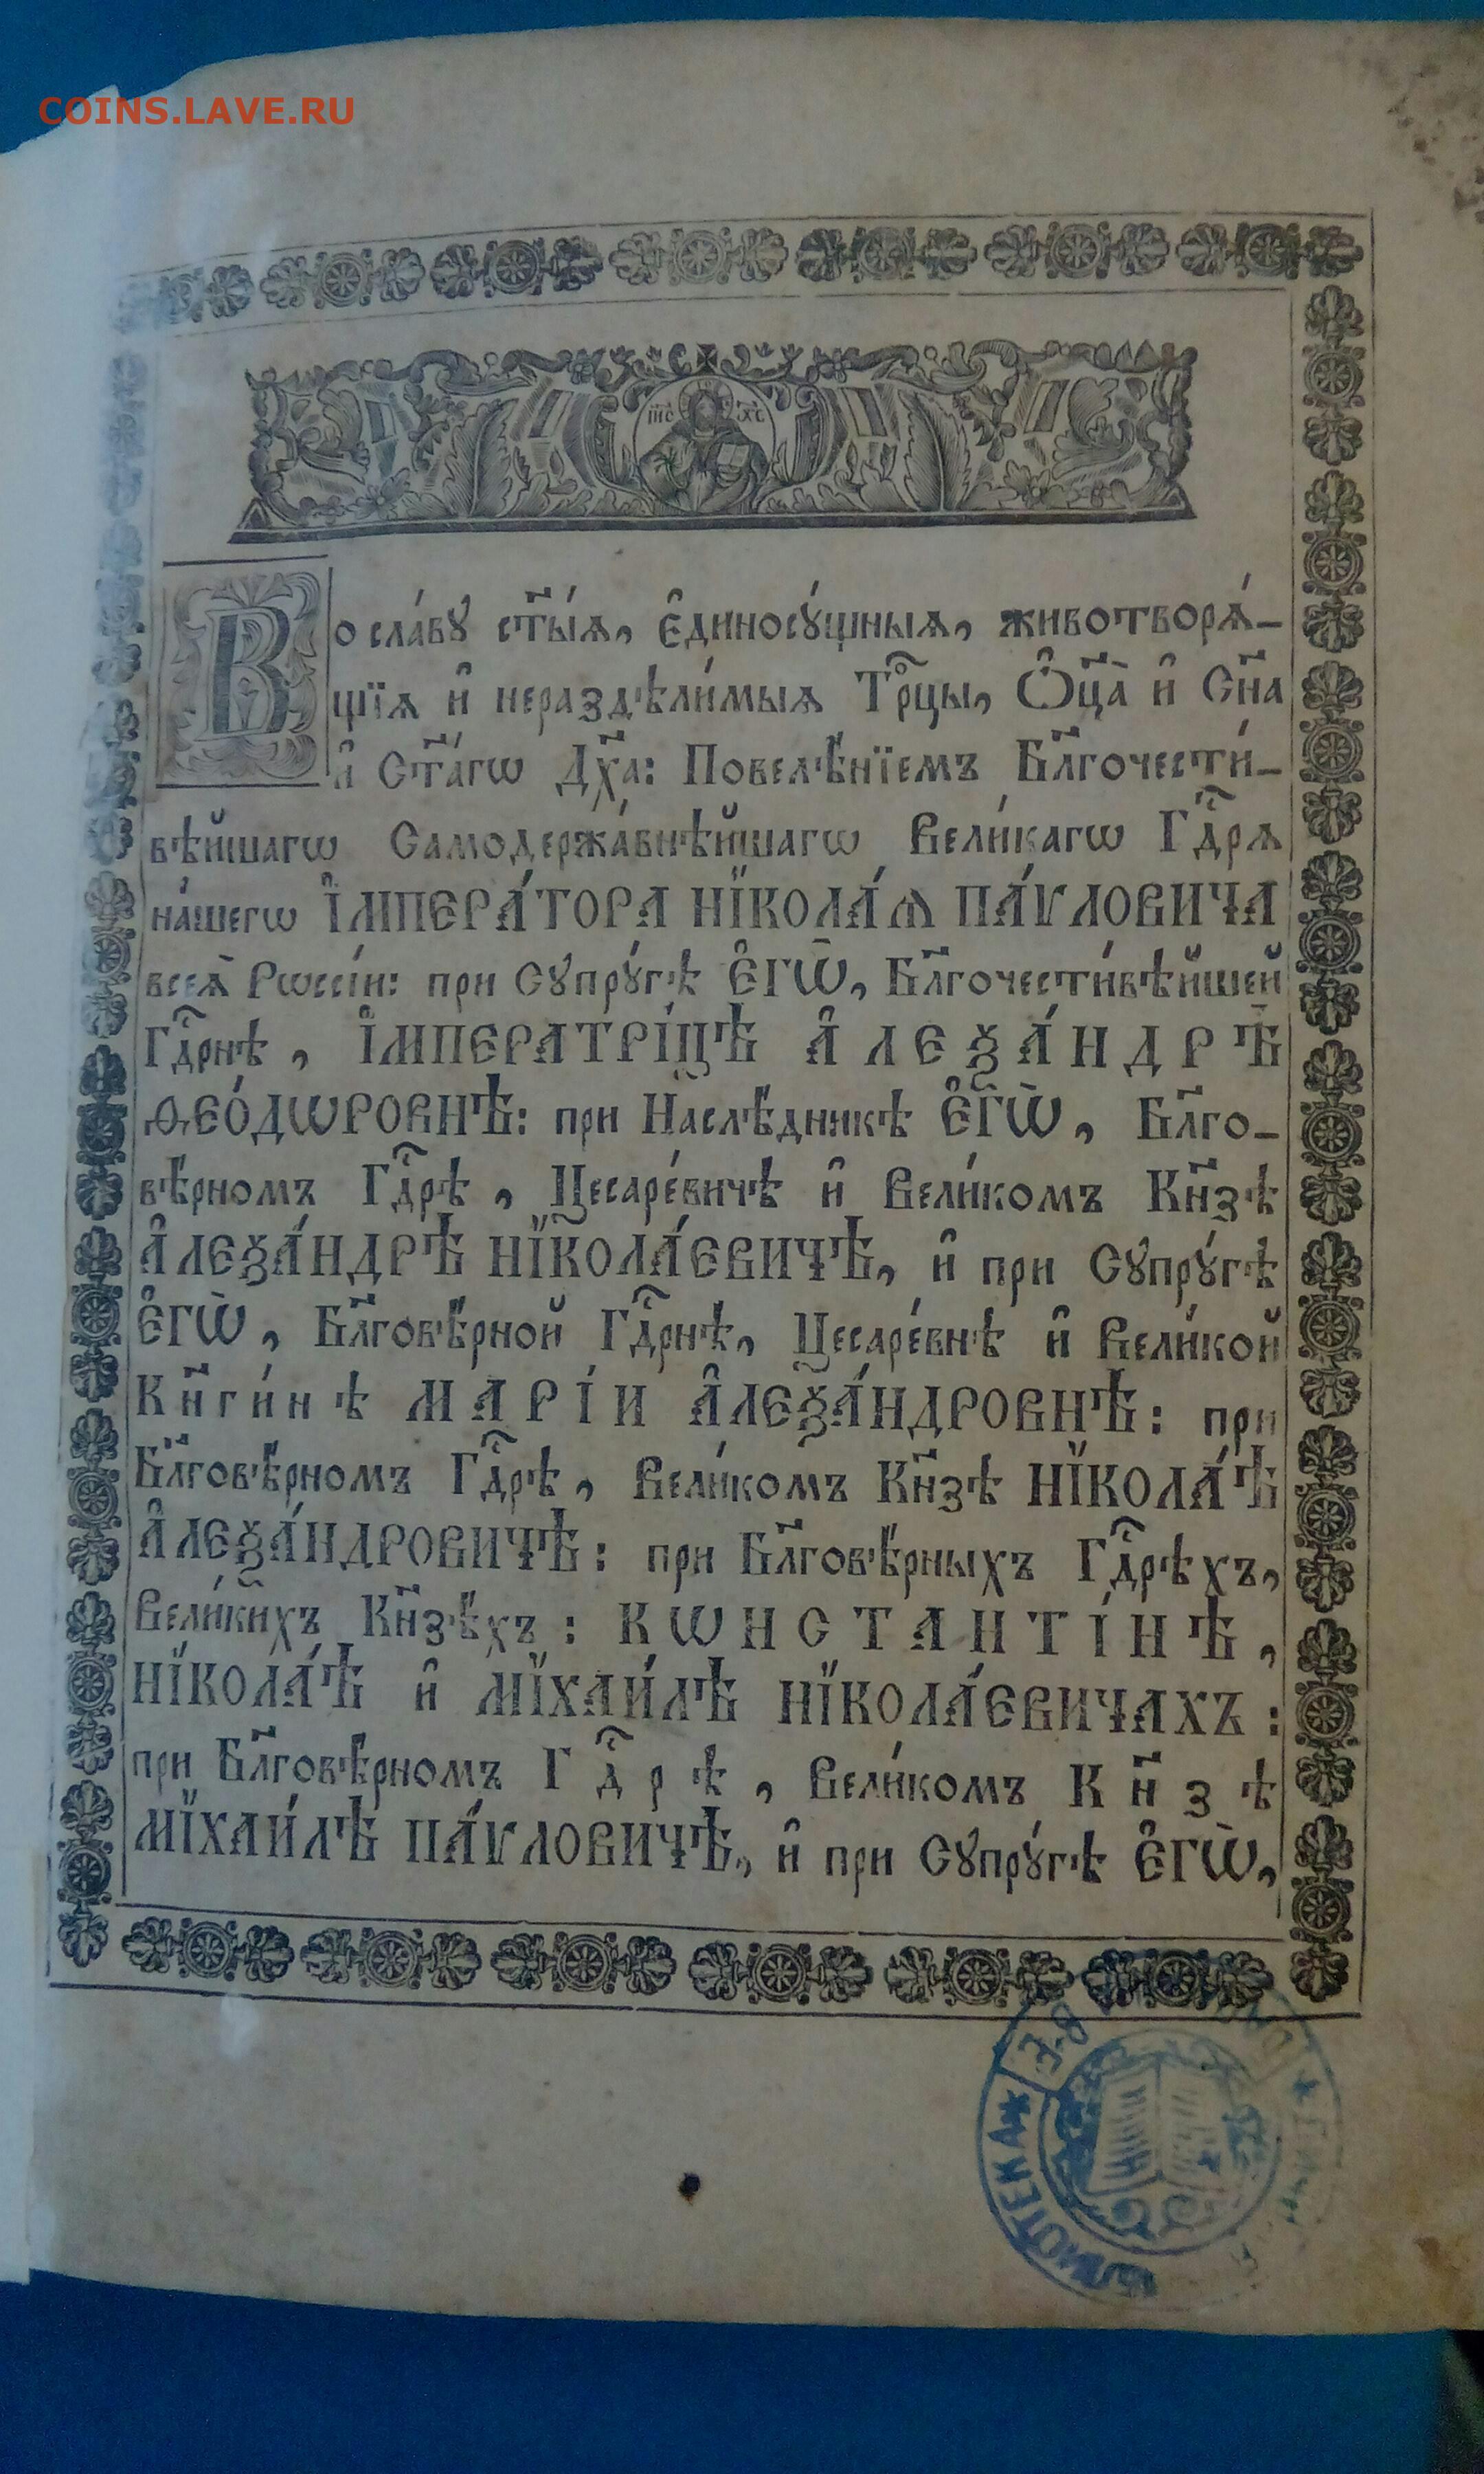 COINS.LAVE.RU
І҆и҃с Х҃с
Во сла́вꙋ ст҃ы́ѧ, є҆диносꙋ́щныѧ, животворѧ́-
щїѧ и҆ нераздѣли́мыѧ Трⷪ҇цы, Ѻ҆ц҃а̀ и҆ Сн҃а
и҆ Ст҃а́гѡ Дх҃а: Повелѣ́нїемъ Бл҃гочести́-
вѣйшагѡ Самодержа́внѣйшагѡ Вели́кагѡ Гдⷭ҇рѧ
на́шегѡ І҆МПЕРА́ТОРА НЇКОЛА́Ѧ ПА́ѴЛОВИЧА
всеѧ̀ Рѡссі́и: при Сꙋпрꙋ́гѣ Є҆ГѠ̀, Бл҃гочести́вѣйшей
Гдⷭ҇рнѣ, І҆МПЕРАТРІ́ЦѢ А҆ЛЕѮА́НДРѢ
ѲЕО́ДѠРОВНѢ: при Наслѣ́дникѣ Є҆ГѠ̀, Бл҃го-
вѣ́рномъ Гдⷭ҇рѣ, Цесаре́вичѣ и҆ Вели́комъ Кн҃зѣ
А҆ЛЕѮА́НДРѢ НЇКОЛА́ЕВИЧѢ, и҆ при Сꙋпрꙋ́гѣ
Є҆ГѠ̀, Бл҃говѣ́рной Гдⷭ҇рнѣ, Цесаре́внѣ и҆ Вели́кой
Кн҃ги́нѣ МАРІ́И А҆ЛЕѮА́НДРОВНѢ: при
Бл҃говѣ́рномъ Гдⷭ҇рѣ, Вели́комъ Кн҃зѣ НЇКОЛА́Ѣ
А҆ЛЕѮА́НДРОВИЧѢ: при Бл҃говѣ́рныхъ Гдⷭ҇рѣхъ,
Вели́кихъ Кн҃зѣ́хъ: КѠНСТАНТІ́НѢ,
НЇКОЛА́Ѣ и҆ МЇХАИ́ЛѢ НЇКОЛА́ЕВИЧАХЪ:
при Бл҃говѣ́рномъ Гдⷭ҇рѣ, Вели́комъ Кн҃зѣ
МЇХАИ́ЛѢ ПА́ѴЛОВИЧѢ, и҆ при Сꙋпрꙋ́гѣ Є҆ГѠ̀,